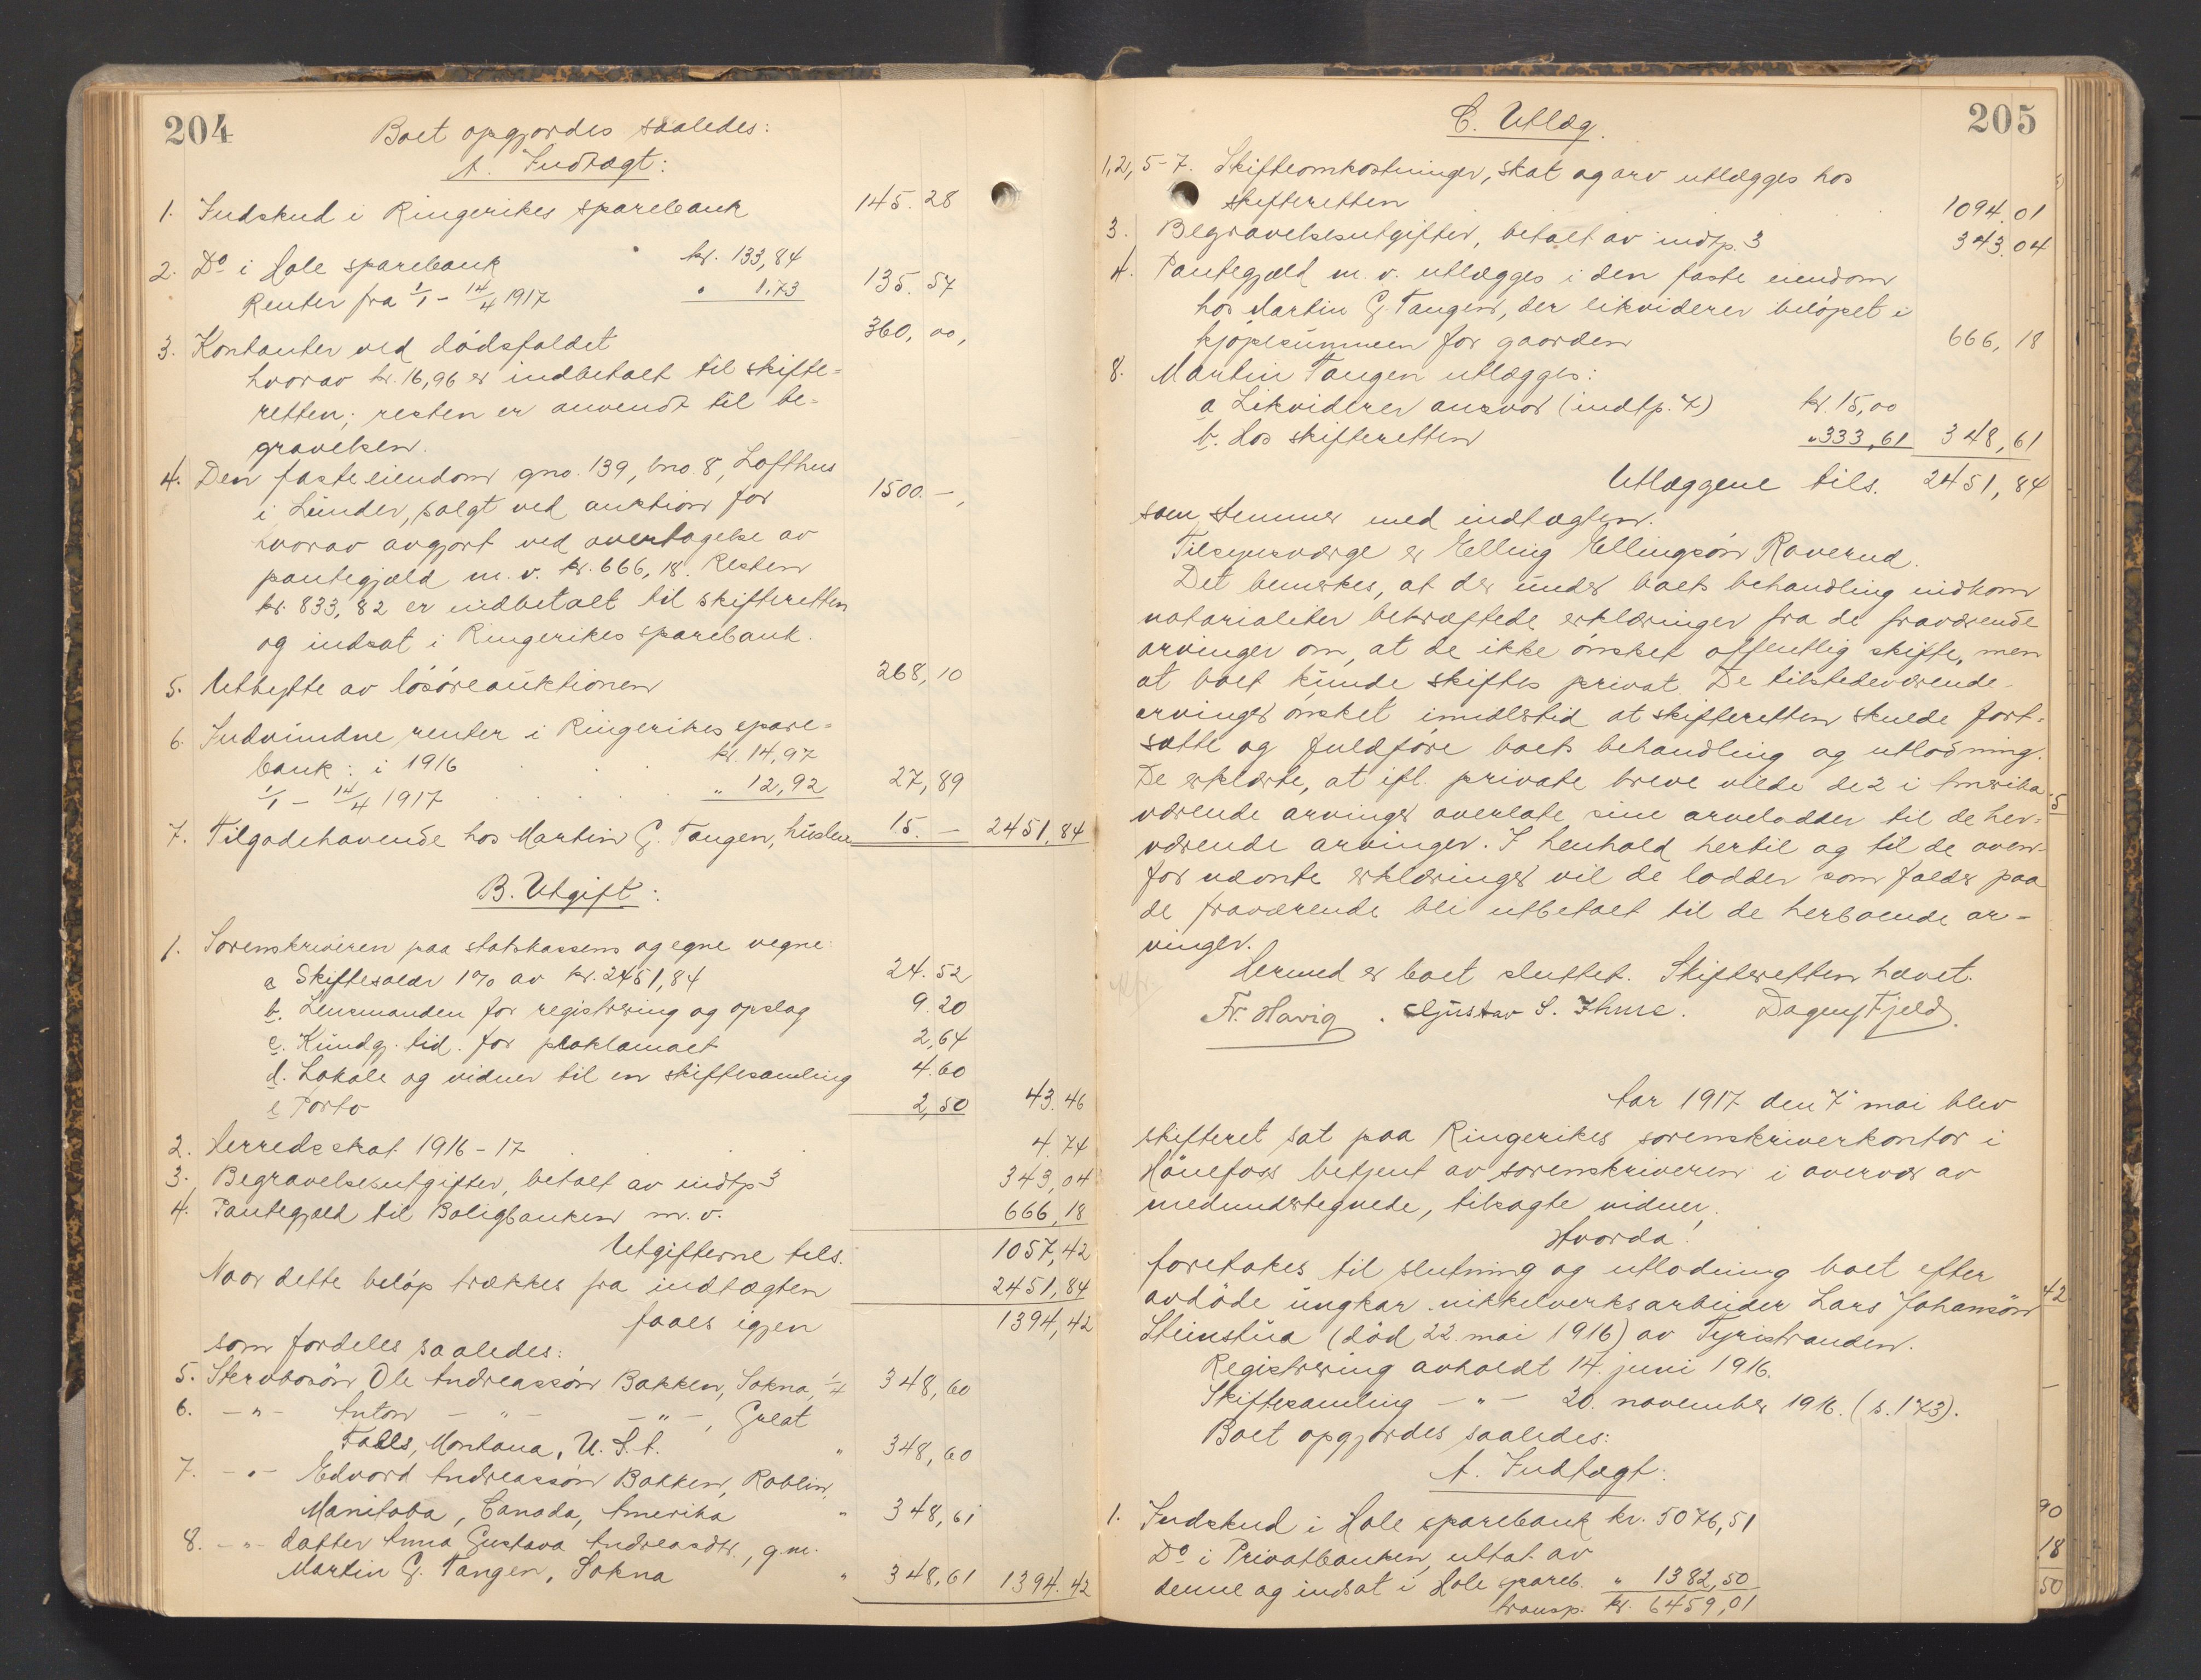 204
Boet opgjordes saaledes:
A. Indtægt:
1. Indskud i Ringerikes sparebank 145.28
2. Do i Hole sparebank kr. 133,84
Renter fra 1/1 - 14/4 1917 " 1.73 135.57
3. Kontanter ved dødsfaldet 360,00,
hvorav kr. 16,96 er indbetalt til skifte=
retten; resten er anvendt til be=
gravelsen.
4. Den faste eiendom gno. 139, bno. 8, Lofthus
i Lunder, solgt ved auktion for 1500.-,
hvorav avgjort ved overtagelse av
pantegjæld m. v. kr. 666,18. Resten
kr. 833,82 er indbetalt til skifteretten
og indsat i Ringerikes sparebank.
5. Utbytte av løsøreauktionen 268,10
6. Indvundne renter i Ringerikes spare=
bank: i 1916 kr. 14,97
1/1 - 14/4 1917 " 12,92 27,89
7. Tilgodehavende hos Martin G. Tangen, husleie 15.- 2451,84
B. Utgift:
1. Sorenskriveren paa statskassens og egne vegne:
a Skiftesalær 1% av kr. 2451,84 24.52
b. Lensmanden for registrering og opslag 9.20
c. Kundgj. tid. for proklamaet 2,64
d. Lokale og vidner til en skiftesamling 4.60
e Porto 2,50 43.46
2. Herredsskat 1916-17 4.74
3. Begravelsesutgifter, betalt av indtp 3 343,04
4. Pantegjæld til Boligbanken m. v. 666,18
Utgifterne tils. 1057,42
Naar dette beløp trækkes fra indtægten 2451,84
faaes igjen 1394,42
som fordeles saaledes:
5. Stervbosøn Ole Andreassøn Bakken, Sokna, 1/4 348,60
6. -"- Anton -"- -"-, Great
Falls, Montana, U. S. A. " 348,60
7. -"- Edvard Andreassøn Bakken, Roblin,
Manitoba, Canada, Amerika " 348,61
8. -"- datter Anna Gustava Andreasdtr., g.m.
Martin G. Tangen, Sokna " 348,61 1394.42
205
C. Utlæg.
1,2,5-7. Skifteomkostninger, skat og arv utlægges hos
skifteretten 1094.01
3. Begravelsesutgifter, betalt av indtp. 3 343.04
4. Pantegjæld m. v. utlægges i den faste eiendom
hos Martin G. Tangen, der likviderer beløpet i
kjøpesummen for gaarden 666,18
8. Martin Tangen utlægges:
a Likviderer ansvar (indtp. 7) kr. 15,00
b. Hos skifteretten " 333,61 348,61
Utlæggene tils. 2451,84
som stemmer med indtægten.
Tilsynsværge er Elling Ellingsøn Raverud.
Det bemerkes, at der under boets behandling indkom
notarialiter bekræftede erklæringer fra de fraværende
arvinger om, at de ikke ønsket offentlig skifte, men
at boet kunde skiftes privat. De tilstedeværende
arvinger ønsket imidlertid at skifteretten skulde fort=
sætte og fuldføre boets behandling og utlodning.
De erklærte, at ifl. private breve vilde de 2 i Amerika
værende arvinger overlate sine arvelodder til de her-
værende arvinger. I henhold hertil og til de oven-
for nævnte erklæringer vil de lodder som falder paa
de fraværende bli utbetalt til de herboende ar-
vinger.
Hermed er boet sluttet. Skifteretten hævet.
Fr. Havig. Gustav S. Ihme. Dagny Fjeld.
Aar 1917 den 7 mai blev
skifteret sat paa Ringerikes sorenskriverkontor i
Hønefoss betjent av sorenskriveren i overvær av
medundertegnede, tilsagte vidner,
Hvorda!
foretokes til slutning og utlodning boet efter
avdøde ungkar nikkelverksarbeider Lars Johansøn
Steinstua (død 22. mai 1916) av Tyristranden.
Registrering avholdt 14. juni 1916.
Skiftesamling -"- 20. november 1916. (s. 173).
Boet opgjordes saaledes:
A. Indtægt:
1. Indskud i Hole sparebank kr. 5076,51
Do i Privatbanken, uttat av
denne og indsat i Hole spareb. " 1382,50
transp. kr. 6459,01
5
42
90
18
50